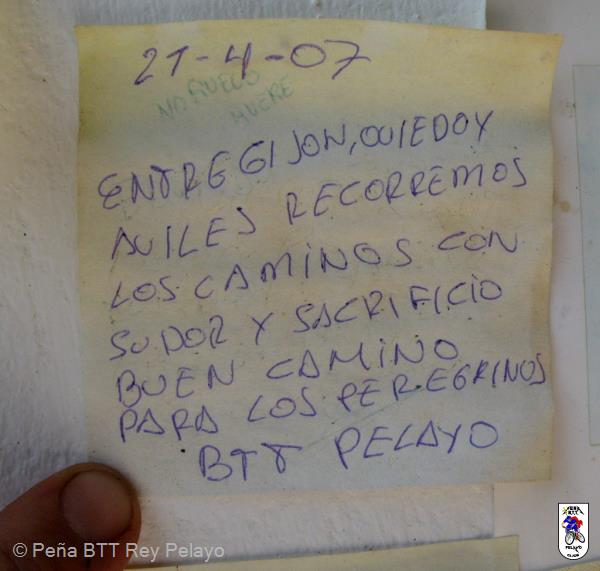 21-4-07
MUERE
ENTRE GIJON, OVIEDO Y
AVILES RECORREMOS
LOS CAMINOS CON
SUDOR Y SACRIFICIO
BUEN CAMINO
PARA LOS PEREGRINOS
BTT PELAYO
© Peña BTT Rey Pelayo
PEÑA
BTT
PELAYO